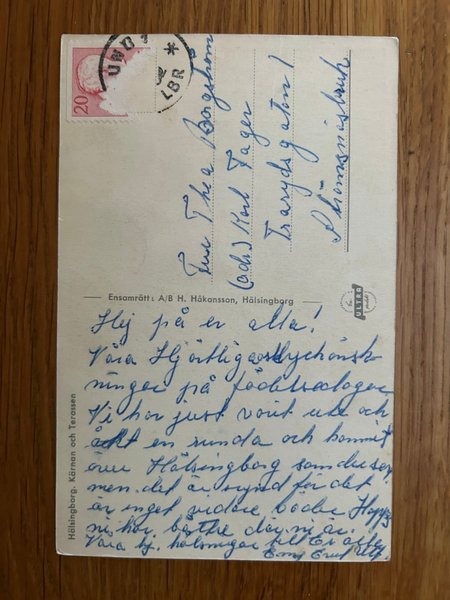 20
UND
LBR
Fru Thea Borgström
(adr) Karl Fager
Trarydsgatan 1
Strömsnäsbruk
Ensamrätt: A/B H. Håkansson, Hälsingborg
ULTRA
Hälsingborg. Kärnan och Terassen
Hej på er alla!
Våra Hjärtligaste lyckönsk-
ningar på födelsedagen
Vi har just varit ute och
åkt en runda och kommit
över Hälsingborg som du ser
men det är synd för det
är inget vidare väder Hopps
ni har bättre där ni är.
Våra hj. hälsningar till Er alla
Emy Ernst Ulf